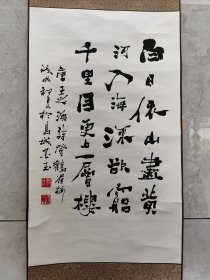 白日依山盡黄
河入海流欲窮
千里目更上一層樓
唐王之渙詩登鸛雀樓